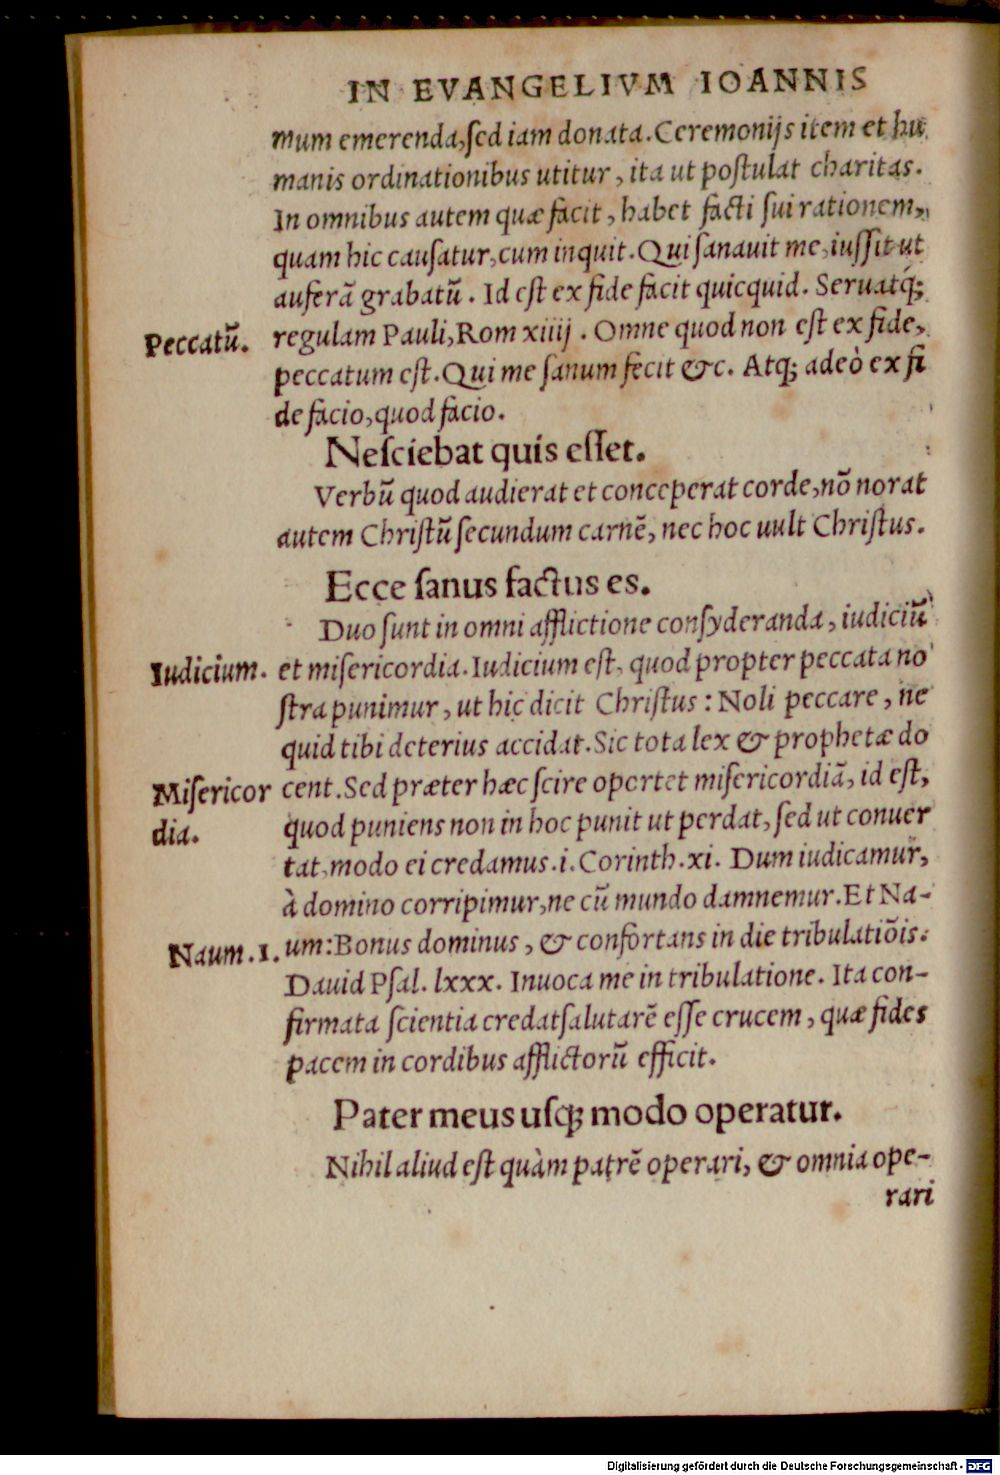 IN EVANGELIVM IOANNIS
mum emerenda, sed iam donata. Ceremonijs item et hu
manis ordinationibus utitur, ita ut postulat charitas.
In omnibus autem quæ facit, habet facti sui rationem,
quam hic causatur, cum inquit. Qui sanauit me, iussit ut
auferã grabatũ. Id est ex fide facit quicquid. Seruatq́;
Peccatũ.
regulam Pauli, Rom xiiij. Omne quod non est ex fide,
peccatum est. Qui me sanum fecit &c. Atq; adeò ex fi
de facio, quod facio.
Nesciebat quis esset.
Verbũ quod audierat et conceperat corde, nõ norat
autem Christũ secundum carnẽ, nec hoc uult Christus.
Ecce sanus factus es.
Duo sunt in omni afflictione consyderanda, iudiciũ
Iudicium.
et misericordia. Iudicium est, quod propter peccata no
stra punimur, ut hic dicit Christus: Noli peccare, ne
quid tibi deterius accidat. Sic tota lex & prophetæ do
Misericor
dia.
cent. Sed præter hæc scire oportet misericordiã, id est,
quod puniens non in hoc punit ut perdat, sed ut conuer
tat, modo ei credamus. i. Corinth. xi. Dum iudicamur,
à domino corripimur, ne cũ mundo damnemur. Et Na-
Naum. 1.
um: Bonus dominus, & confortans in die tribulatiõis.
Dauid Psal. lxxx. Inuoca me in tribulatione. Ita con-
firmata scientia credat salutarẽ esse crucem, quæ fides
pacem in cordibus afflictorũ efficit.
Pater meus usq; modo operatur.
Nihil aliud est quàm patrẽ operari, & omnia ope-
rari
Digitalisierung gefördert durch die Deutsche Forschungsgemeinschaft - DFG